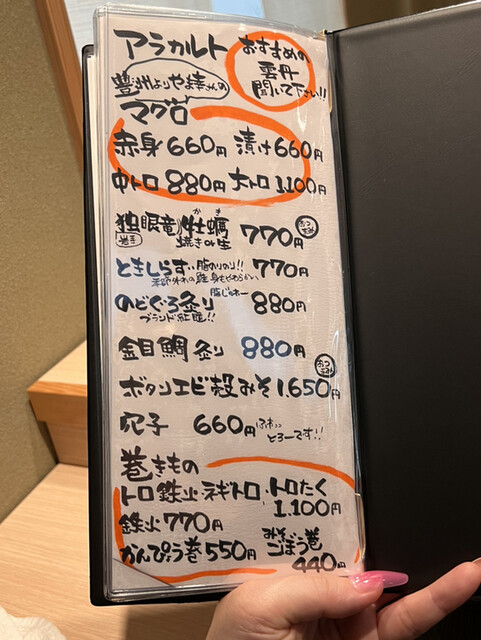 アラカルト
おすすめの
雲丹
聞いて下さい!!
豊洲よりやま幸さんの
マグロ
赤身 660円 漬け 660円
中トロ 880円 大トロ 1.100円
独眼竜 牡蠣 かき 770円
岩手 焼きor生
ときしらず 脂のりのり!! 770円
のどぐろ炙り 880円
ブランド紅瞳!!
金目鯛炙り 880円
ボタンエビ 殻みそ 1.650円
穴子 660円 ふわっ
とろーです!!
巻きもの
トロ鉄火 ネギトロ、トロたく
1.100円
鉄火 770円
みそごぼう巻
かんぴょう巻 550円
440円